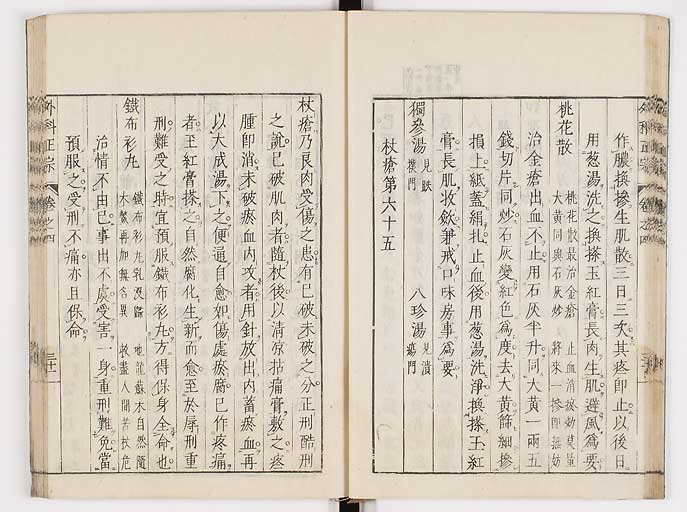 作膿換摻生肌散三日三次其疼卽止以後日
用葱湯洗之換搽玉紅膏長肉生肌避風爲要
桃花散
桃花散最治金瘡 止血消瘀効莫量
大黃同與石灰炒 將來一摻卽無妨
治金瘡出血不止用石灰半升同大黃一兩五
錢切片同炒石灰變紅色爲度去大黃篩細摻
損上紙蓋絹扎止血後用葱湯洗淨換搽玉紅
膏長肌收斂兼戒口味房事爲要
獨參湯 見跌撲門 八珍湯 見潰瘍門
杖瘡第六十五
杖瘡乃良肉受傷之患有已破未破之分正刑酷刑
之說已破肌肉者隨杖後以清凉拈痛膏敷之疼
腫卽消未破瘀血內攻者用針放出內蓄瘀血再
以大成湯下之便通自愈如傷處瘀腐已作疼痛
者玉紅膏搽之自然腐化生新而愈至於辱刑重
刑難受之時宜預服鐵布衫丸方得保身全命也
鐵布衫丸
鐵布衫丸乳沒歸 地龍蘇木自然隨
木鱉再加無名異 救盡人間苦杖危
治情不由已事出不虞受害一身重刑難免當
預服之受刑不痛亦且保命
外科正宗 卷之四
外科正宗 卷之四